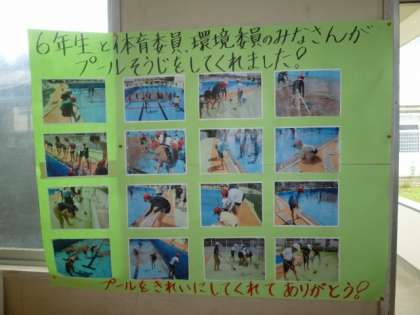 6年生と体育委員、環境委員のみなさんが
プールそうじをしてくれました!
プールをきれいにしてくれてありがとう!